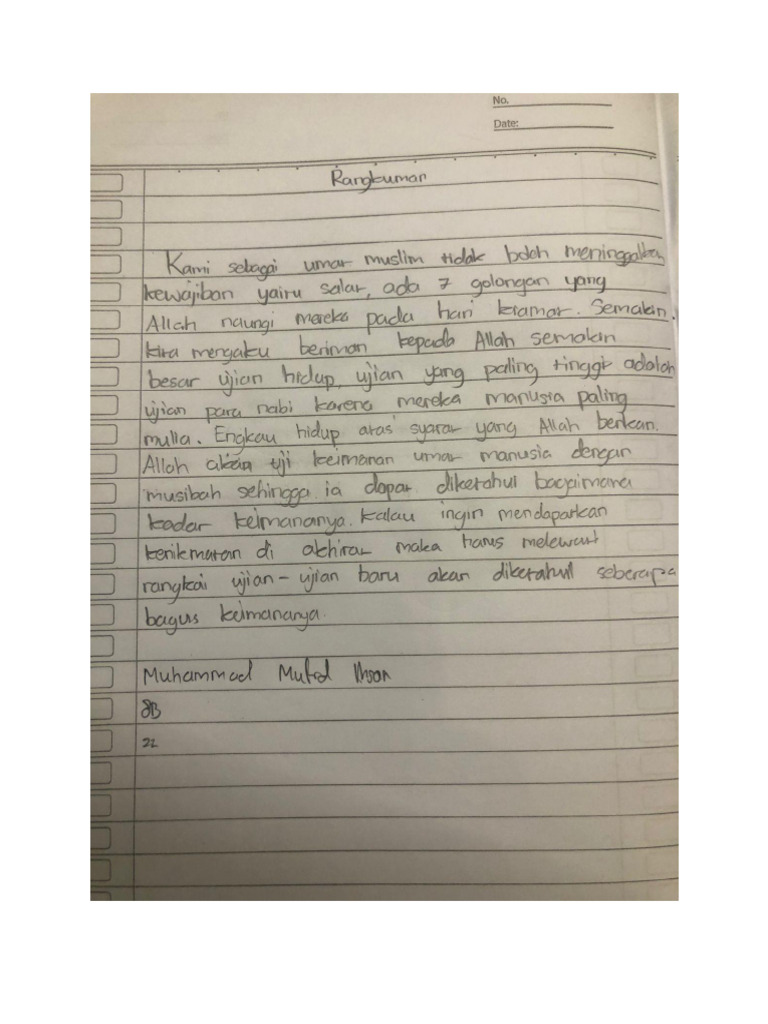 No.
Date:
Rangkuman
Kami sebagai umat muslim tidak boleh meninggalkan
kewajiban yaitu salat, ada 7 golongan yang
Allah naungi mereka pada hari kiamat. Semakin
kita mengaku beriman kepada Allah semakin
besar ujian hidup, ujian yang paling tinggi adalah
ujian para nabi karena mereka manusia paling
mulia. Engkau hidup atas syarat yang Allah berikan.
Allah akan uji keimanan umat manusia dengan
musibah sehingga ia dapat diketahui bagaimana
kadar keimananya. Kalau ingin mendapatkan
kenikmatan di akhirat maka harus melewati
rangkai ujian-ujian baru akan diketahui seberapa
bagus keimananya.
Muhammad Ihsan
8B
22